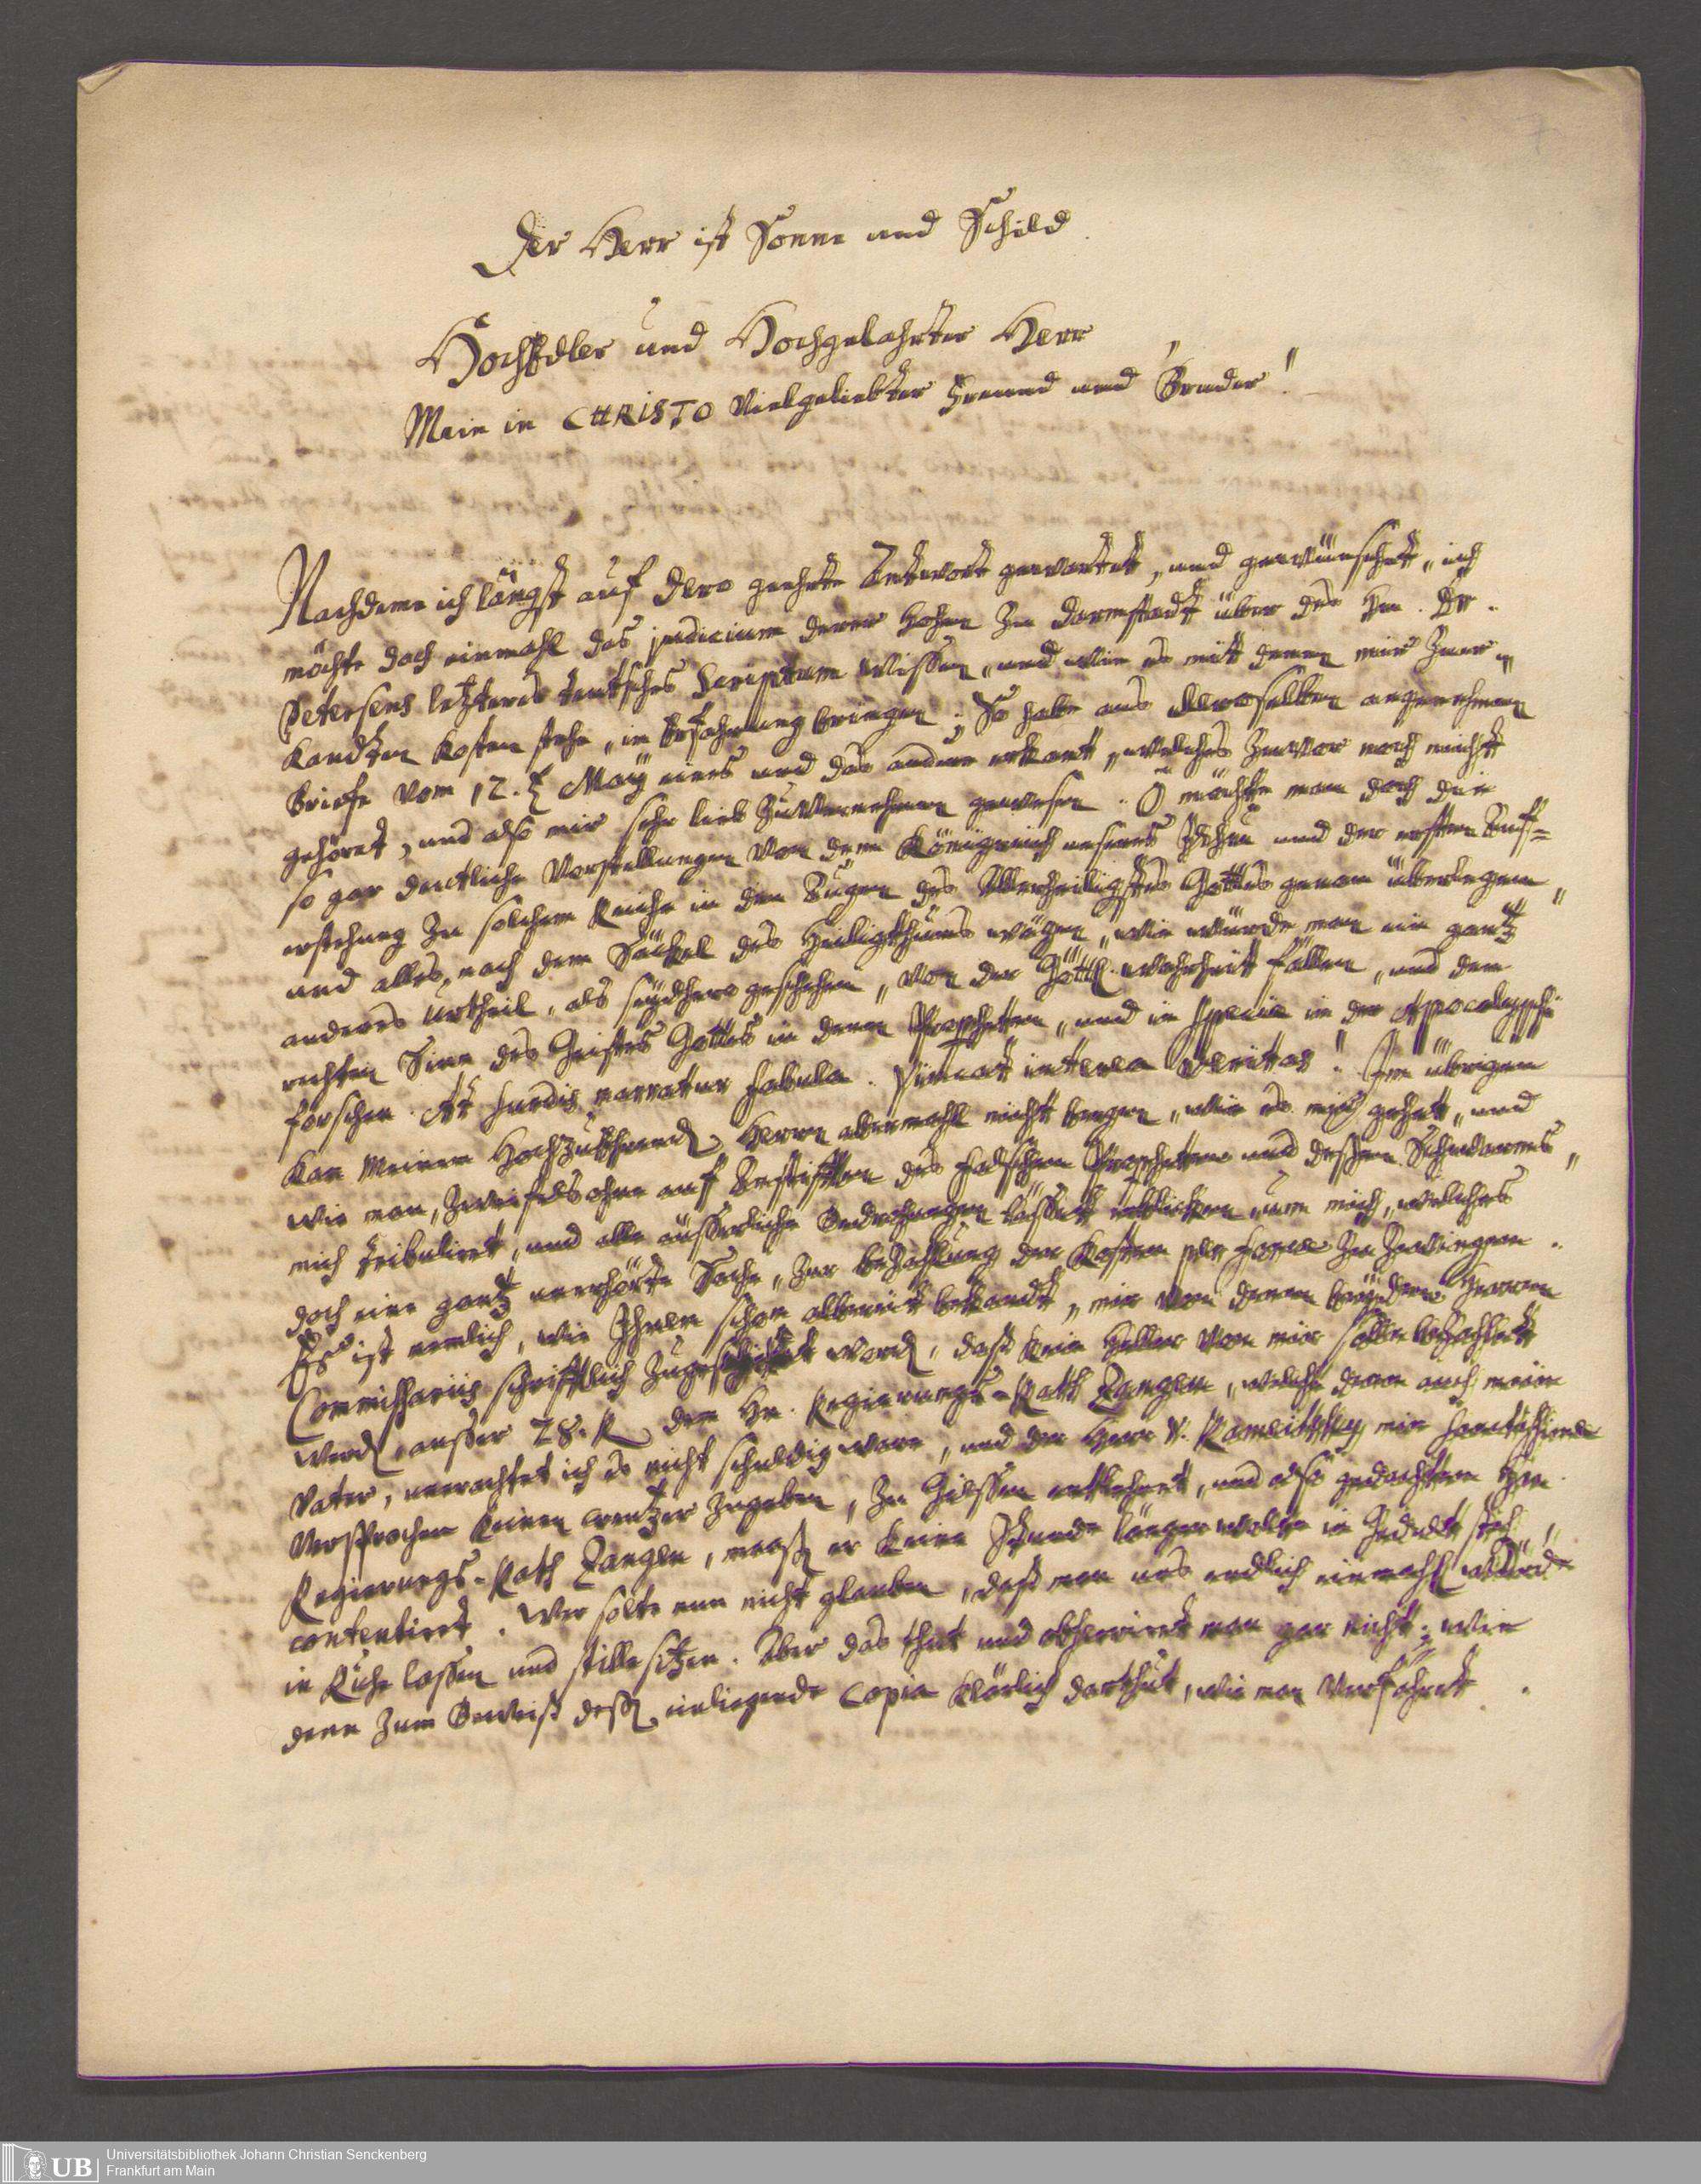 7
Der Herr ist Sonne und Schild.
HochEdler und Hochgelahrter Herr
Mein in CHRISTO Vielgeliebter Freund und Bruder!
Nachdeme ich längst auf Dero geehrte Antwort gewartet, und gewünschet, ich
möchte doch einmahl das judicium derer Hohen zu Darmstadt über des Hn. Dr.
Petersens letzteres teutsches Scriptum wissen, und wie es mit denen mir zuer-
kandten Kosten stehe, in Erfahrung bringen; So habe aus Deroselben angenehmen
Briefe vom 12. Maÿ eines und das andere erkant, welches zuvor noch nicht
gehöret, und also mir sehr lieb zuvernehmen gewesen. O möchte man doch die
so gar deutliche Vorstellungen von dem Königreich unsers JEsu und der ersten Auff-
erstehung zu solchem Reiche in den Augen des Allerheiligsten Gottes genau überlegen,
und alles nach dem Säckel des Heiligthums wägen, wie würde man ein gantz
anderes Urtheil, als seÿdhero geschehen, von der Göttl. Wahrheit fällen, und den
rechten Sinn des Geistes Gottes in denen Propheten, und in specie in der Apocalypsi
forschen. At surdis narratur fabula. Vincat interea veritas. Im übrigen
kan Meinem Herrn abermahl nicht bergen, wie es mir gehet, und
wie man, zweifels ohne auf Anstifften des falschen Propheten und dessen Schwarms,
mich tribuliret, und alle äusserliche Bedrohungen lässet erblicken, um mich, welches
doch eine gantz unerhörte Sache, zur bezahlung der Kosten per force zu zwingen.
Es ist nemlich, wie Ihnen schon allbereit bekandt, mir von denen beÿden Herren
Commissariis schrifftlich zugeschicket word, daß kein Heller von mir solle bezahlet
werd, ausser 28. R. dem Hn. Regierungs-Rath Zangen, welche dann auch mein
Vater, unerachtet ich es nicht schuldig ware, und der Herr v. mir
versprochen keinen creutzer zugeben, zu Giessen entlehnet, und also gedachten Hn.
Regierungs-Rath Zangen, er keine Stunde länger wolte in Gedult steh,
contentiret. Wer solte nun nicht glauben, daß man uns endlich einmahl würde
in Ruhe lassen und stille sitzen. Aber das thut und observiret man gar nicht; wie
dann zum Beweiß deß einliegende Copia klärlich darthut, wie man verfähret.
UB
Universitätsbibliothek Johann Christian Senckenberg
Frankfurt am Main